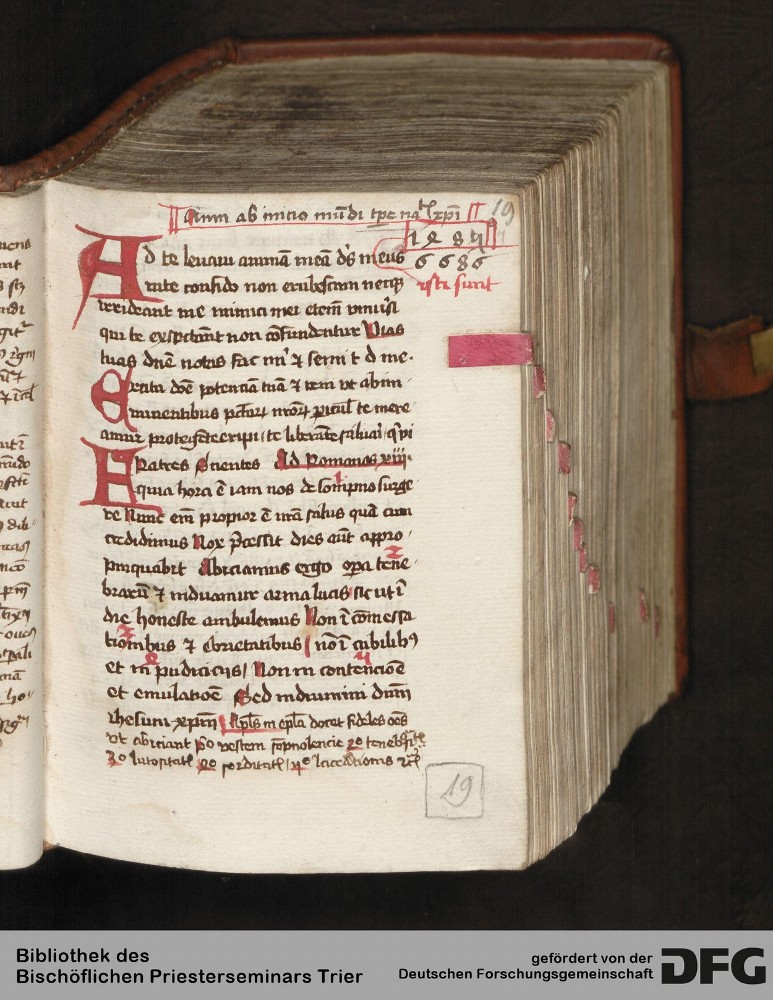 Anni ab initio mūdi tp̄e na xp̄i
19
1 2 8 4
6 6 8 6
isti sunt
Ad te leuaui animā meā dꝰs meus
in te confido non erubescam neqꝫ
irrideant me inimici mei etem̄ vniūsi
qui te expectāt non cōfundentur Vias
tuas dn̄e notas fac mͥ ⁊ semit d me.
Excita dn̄e potenciā tuā ⁊ veni vt ab im
minentibus pctōꝝ nr̄oꝝ pericul te mere
amur protegēte eripi / te liberāte saluari qͥ vi
Fratres Scientes Ad Romanos xiij.
quia hora ē iam nos de sompno surge
re Nunc em̄ propior ē nr̄a salus quā cum
credidimus Nox p̄cessit dies aūt appro
pinquabit Abiciamus ergo oꝑa tene
brarū ⁊ induamur arma lucis sic ut ī
die honeste ambulemus Non ī comessa
tionibus ⁊ ebrietatibus / nō ī cubilibꝰ
et inpudiciciis / Non in contencioē
et emulatioē Sed induimini dn̄m
ihesum xpm̄ Apl̄s in epl̄a docet fideles oēs
vt abiciant pͦ vestem sōpnolencie 2º
3º
19
Bibliothek des
Bischöflichen Priesterseminars Trier
gefördert von der
Deutschen Forschungsgemeinschaft
DFG